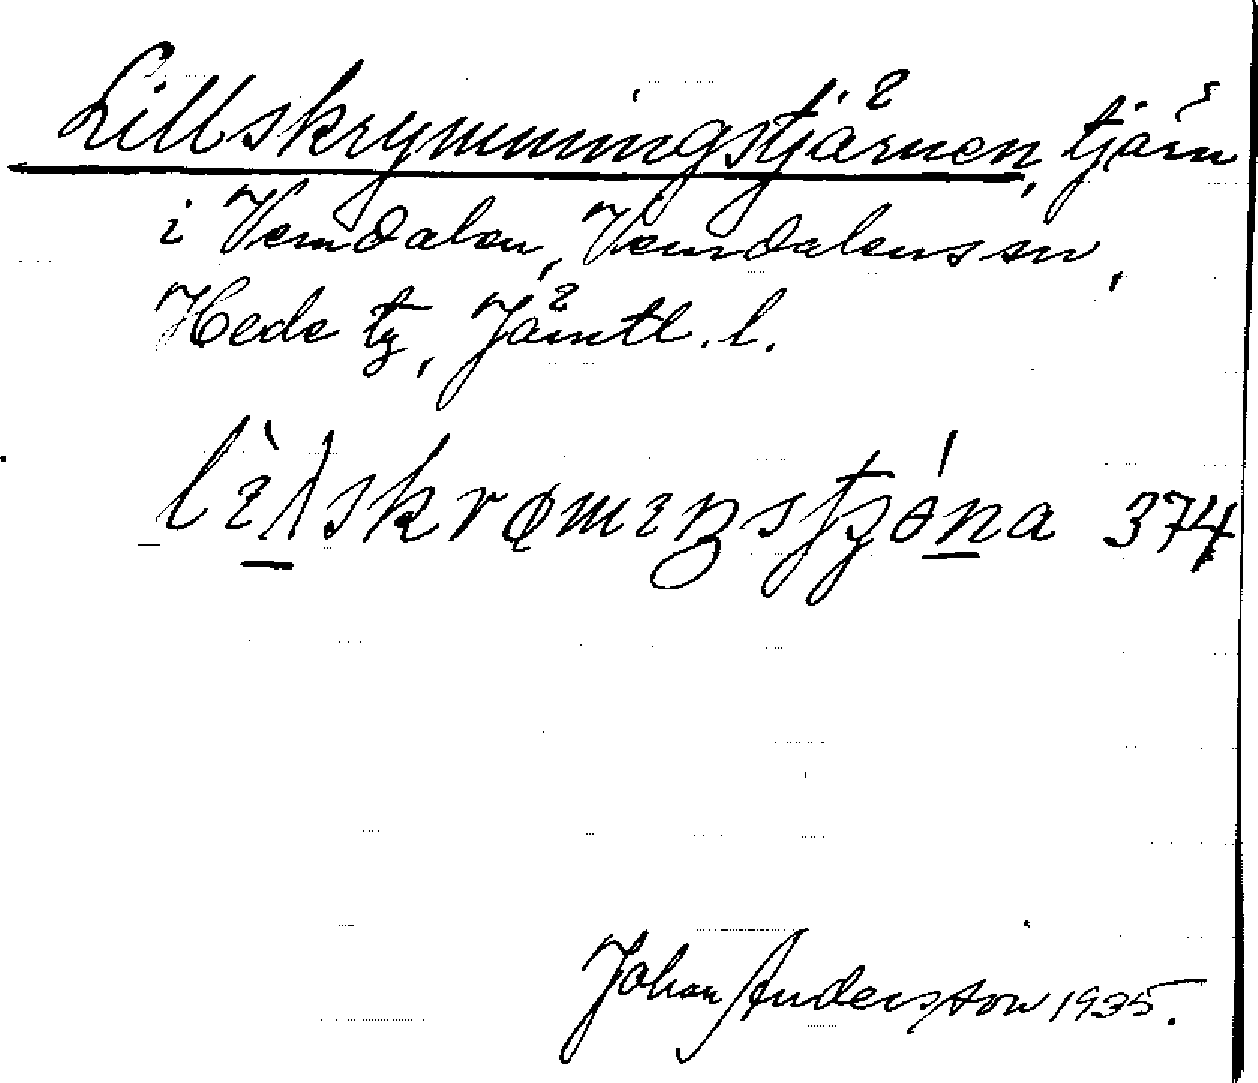 Lillskrymningstjärnen, tjärn
i Vemdalen, Vemdalens sn,
Hede tg, Jämtl. l.
374
Johan Andersson 1935.